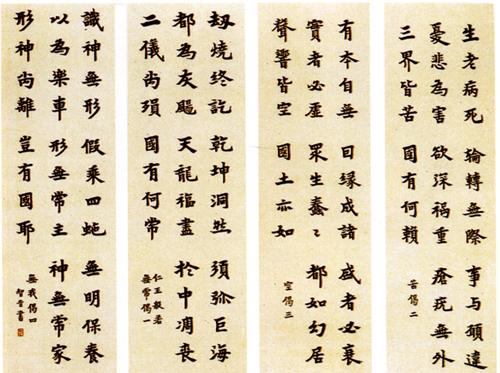 生老病死輪轉無際事与願違
憂悲為害欲深禍重瘡疣無外
三界皆苦國有何賴
苦偈二
有本自無因緣成諸盛者必衰
實者必虛眾生蠢〻都如幻居
聲響皆空國土亦如
空偈三
劫燒終訖乾坤洞然須弥巨海
都為灰颺天龍福盡於中凋喪
二儀尚殞國有何常
仁王般若
無常偈一
識神無形假乘四蛇無明保養
以為樂車形無常主神無常家
形神尚離豈有國耶
無我偈四